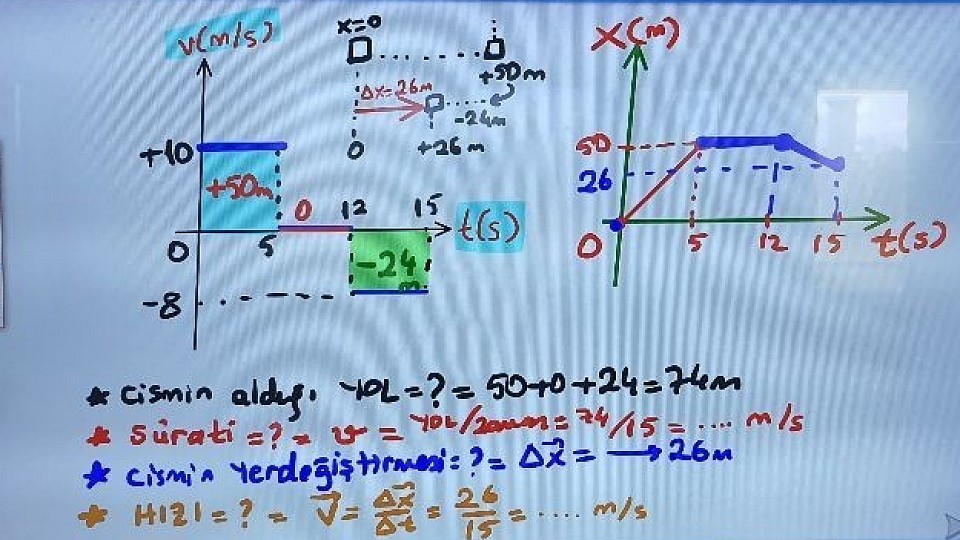 v(m/s)
x=0
+50m
Δx=26m
-24m
0
+26m
+10
+50m
0
12
15
t(s)
0
5
-24
m
-8
X(m)
50
26
0
5
12
15
t(s)
★ cismin aldığı YOL=? = 50+0+24=74m
★ sürati=? = v = YOL/zaman = 74/15 = .... m/s
★ cismin Yerdeğiştirmesi=? = Δx⃗ = → 26m
★ HIZI=? = V⃗ = Δx⃗/Δt = 26/15 = .... m/s